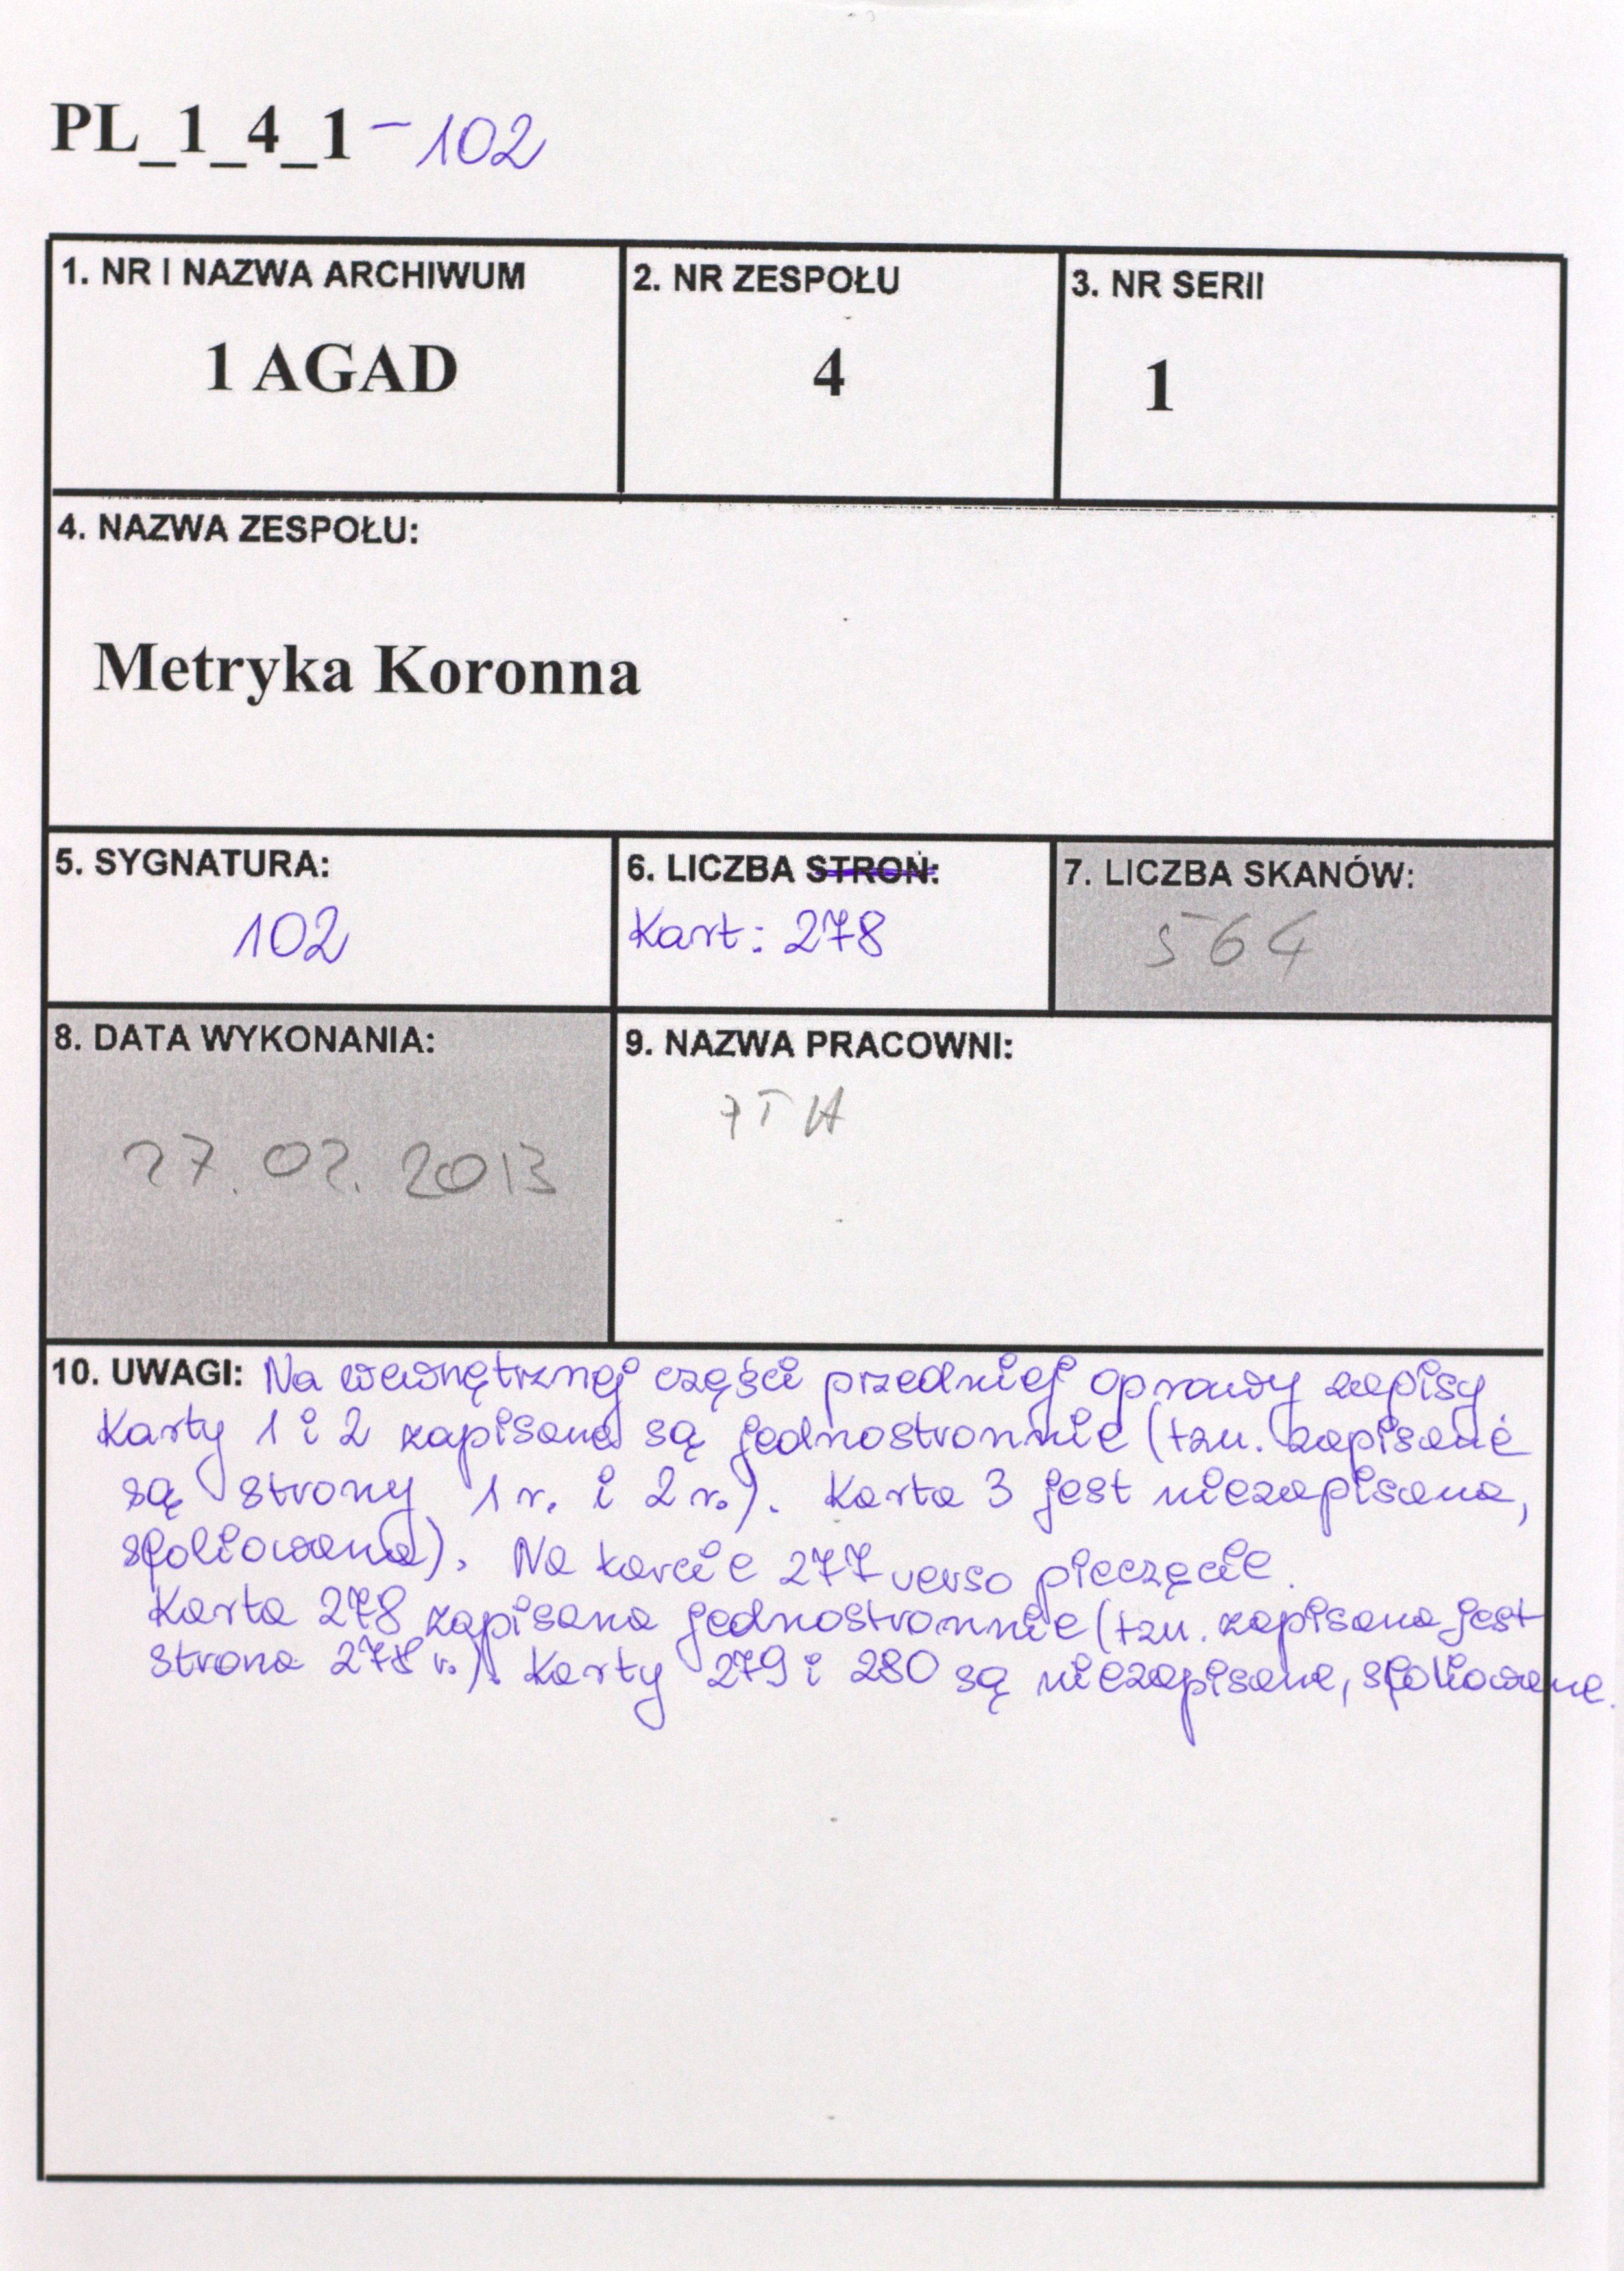 PL_1_4_1 – 102
1. NR I NAZWA ARCHIWUM
1 AGAD
2. NR ZESPOŁU
4
3. NR SERII
1
4. NAZWA ZESPOŁU:
Metryka Koronna
5. SYGNATURA:
102
6. LICZBA STRON:
Kart: 278
7. LICZBA SKANÓW:
564
8. DATA WYKONANIA:
27.02.2013
9. NAZWA PRACOWNI:
10. UWAGI: Na wewnętrznej części przedniej oprawy zapisy
Karty 1 i 2 zapisane są jednostronnie (tzn. zapisane
są strony 1 r. i 2 r.). Karta 3 jest niezapisana,
sfoliowana). Na karcie 277 verso pieczęcie.
Karta 278 zapisana jednostronnie (tzn. zapisana jest
strona 278 r.). Karty 279 i 280 są niezapisane, sfoliowane.